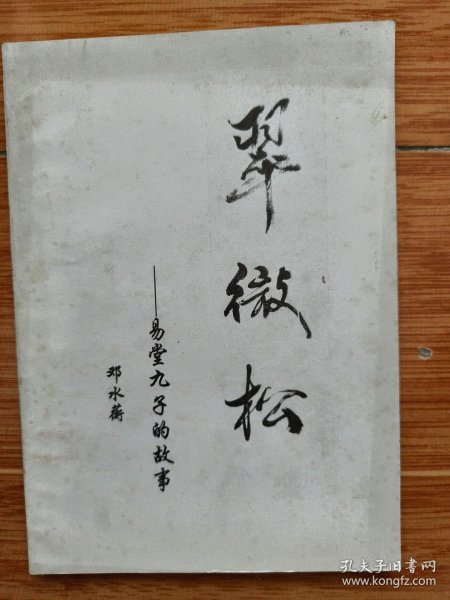 翠微松
——易堂九子的故事
邓水蘅
孔夫子旧书网
www.kongfz.com